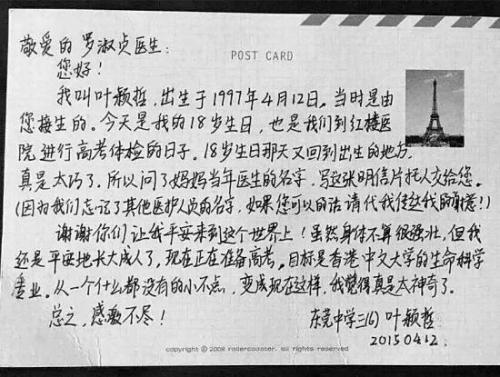 敬爱的罗淑贞医生：
POST CARD
您好！
我叫叶颖哲，出生于1997年4月12日。当时是由
您接生的。今天是我的18岁生日，也是我们到红楼医
院进行高考体检的日子。18岁生日那天又回到出生的地方，
真是太巧了。所以问了妈妈当年医生的名字，写这张明信片托人交给您。
(因为我们忘记了其他医护人员的名字，如果您可以的话请代我传达我的谢意！)
谢谢你们让我平安来到这个世界上！虽然身体不算很强壮，但我
还是平安地长大成人了，现在正在准备高考。目标是香港中文大学的生命科学
专业。从一个什么都没有的小不点，变成现在这样，我觉得真是太神奇了。
总之，感激不尽！
东莞中学三(6) 叶颖哲
20150412.
copyright © 2008 rollercoaster. all rights reserved.